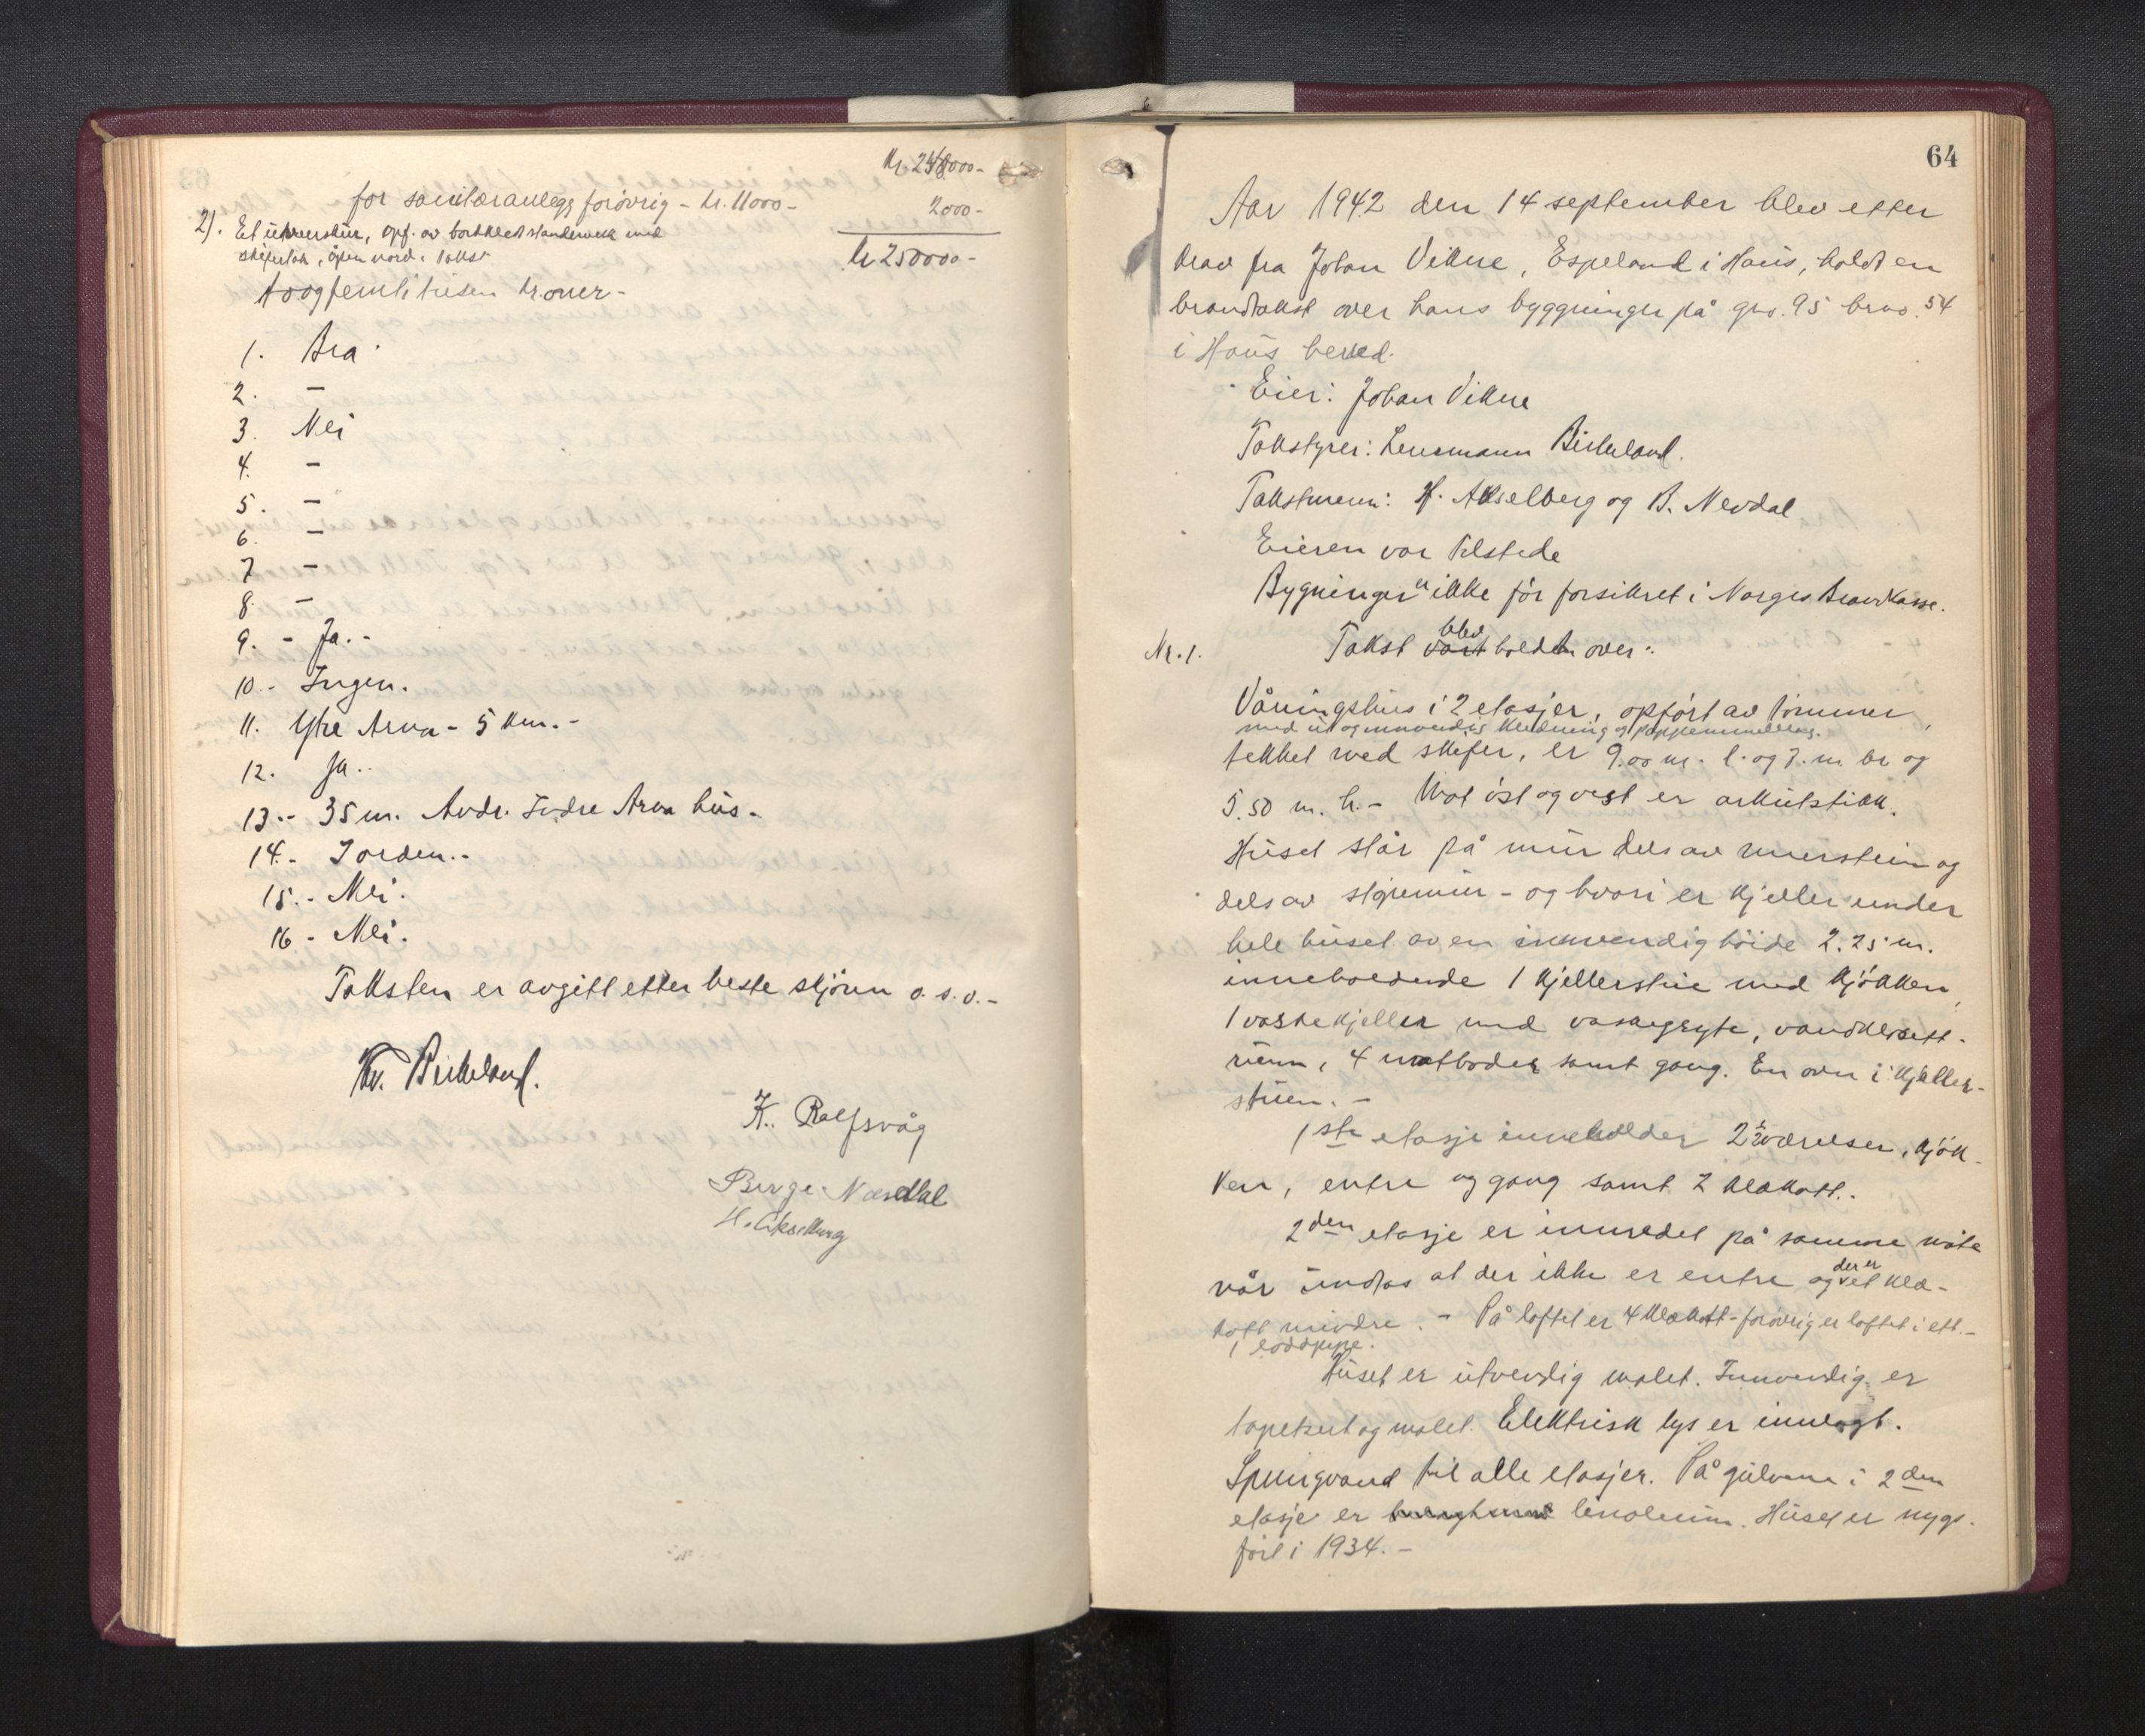 Kr 248000-
for sanitæranlegg forøvrig - kr. 11000-
2000-
2). Et uthus, opf. av bordkledt standerverk med
skifertak, åpen nord. Takst
Kr 250000-
toogfemti tusen kroner-
1. Bra
2. -
3. Nei
4. -
5. -
6. -
7. -
8. -
9. - Ja. -
10. - Ingen.
11. Ytre Arna - 5 km. -
12. Ja..
13. - 35 m. Andr. Indre Arna hus -
14. - Jorden. -
15. - Nei.
16 - Nei.
Taksten er avgitt etter beste skjønn o. s. v. -
Kr. Birkeland.
K. Rolfsvåg
Birge Nævdal
H. Akselberg
64
Aar 1942 den 14 september blev etter
krav fra Johan Vikne, Espeland i Haus, holdt en
brandtakst over hans byggninger på gno. 95 brno. 54
i Haus herred.
Eier: Johan Vikne
Takstyrer: Lensmann Birkeland.
Takstmenn: H. Akselberg og B. Nevdal
Eieren var tilstede
Bygninger er ikke før forsikret i Norges Brandkasse.
Nr. 1. Takst vart blev holdt over:
Våningshus i 2 etasjer, opført av tømmer,
med ut og innvendig kledning og papp emmellem.
tekket med skifer, er 9.00 m. l. og 7. m. br og
5.50 m. h. - Mot øst og vest er arkutstikk.
Huset står på mur dels av murstein og
dels av støpemur - og hvori er kjeller under
hele huset av en innvendig høide 2.25 m.
inneholdende 1 kjellerstue med kjøkken,
1 vaskekjeller med vaskegryte, vandklosett-
rum, 4 matboder samt gang. En ovn i kjeller-
stuen. -
1ste etasje inneholder 2 værelser, kjøk-
ken, entre og gang samt 2 klækott. -
2den etasje er innredet på samme måte
når undtas at der ikke er entre og der er et klæ-
kott mindre. - På loftet er 4 klækott - forøvrig er loftet i ett. -
1 loddpipe.
Huset er utvendig malet. Innvendig er
tapetsert og malet. Elektrisk lys er innlagt.
Springvand til alle etasjer. På gulvene i 2den
etasje er linoleum. Huset er nyop-
ført i 1934. -